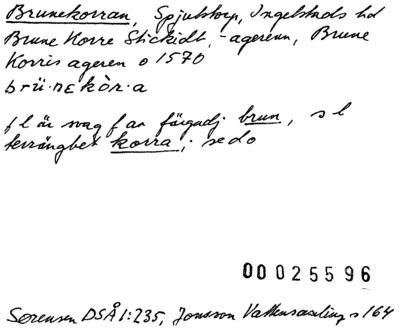 Brunekorran, Spjutstorp, Ingelstads hd
Brune Korre Stickidt, -ageren, Brune
Korris ageren o 1570
brü·nɛkòr·a
f l är svag f av färgadj brun, s l
terrängbet korra; se do
00 0255 96
Sørensen DSÅ 1:235, Jonsson Vattensamling s 164